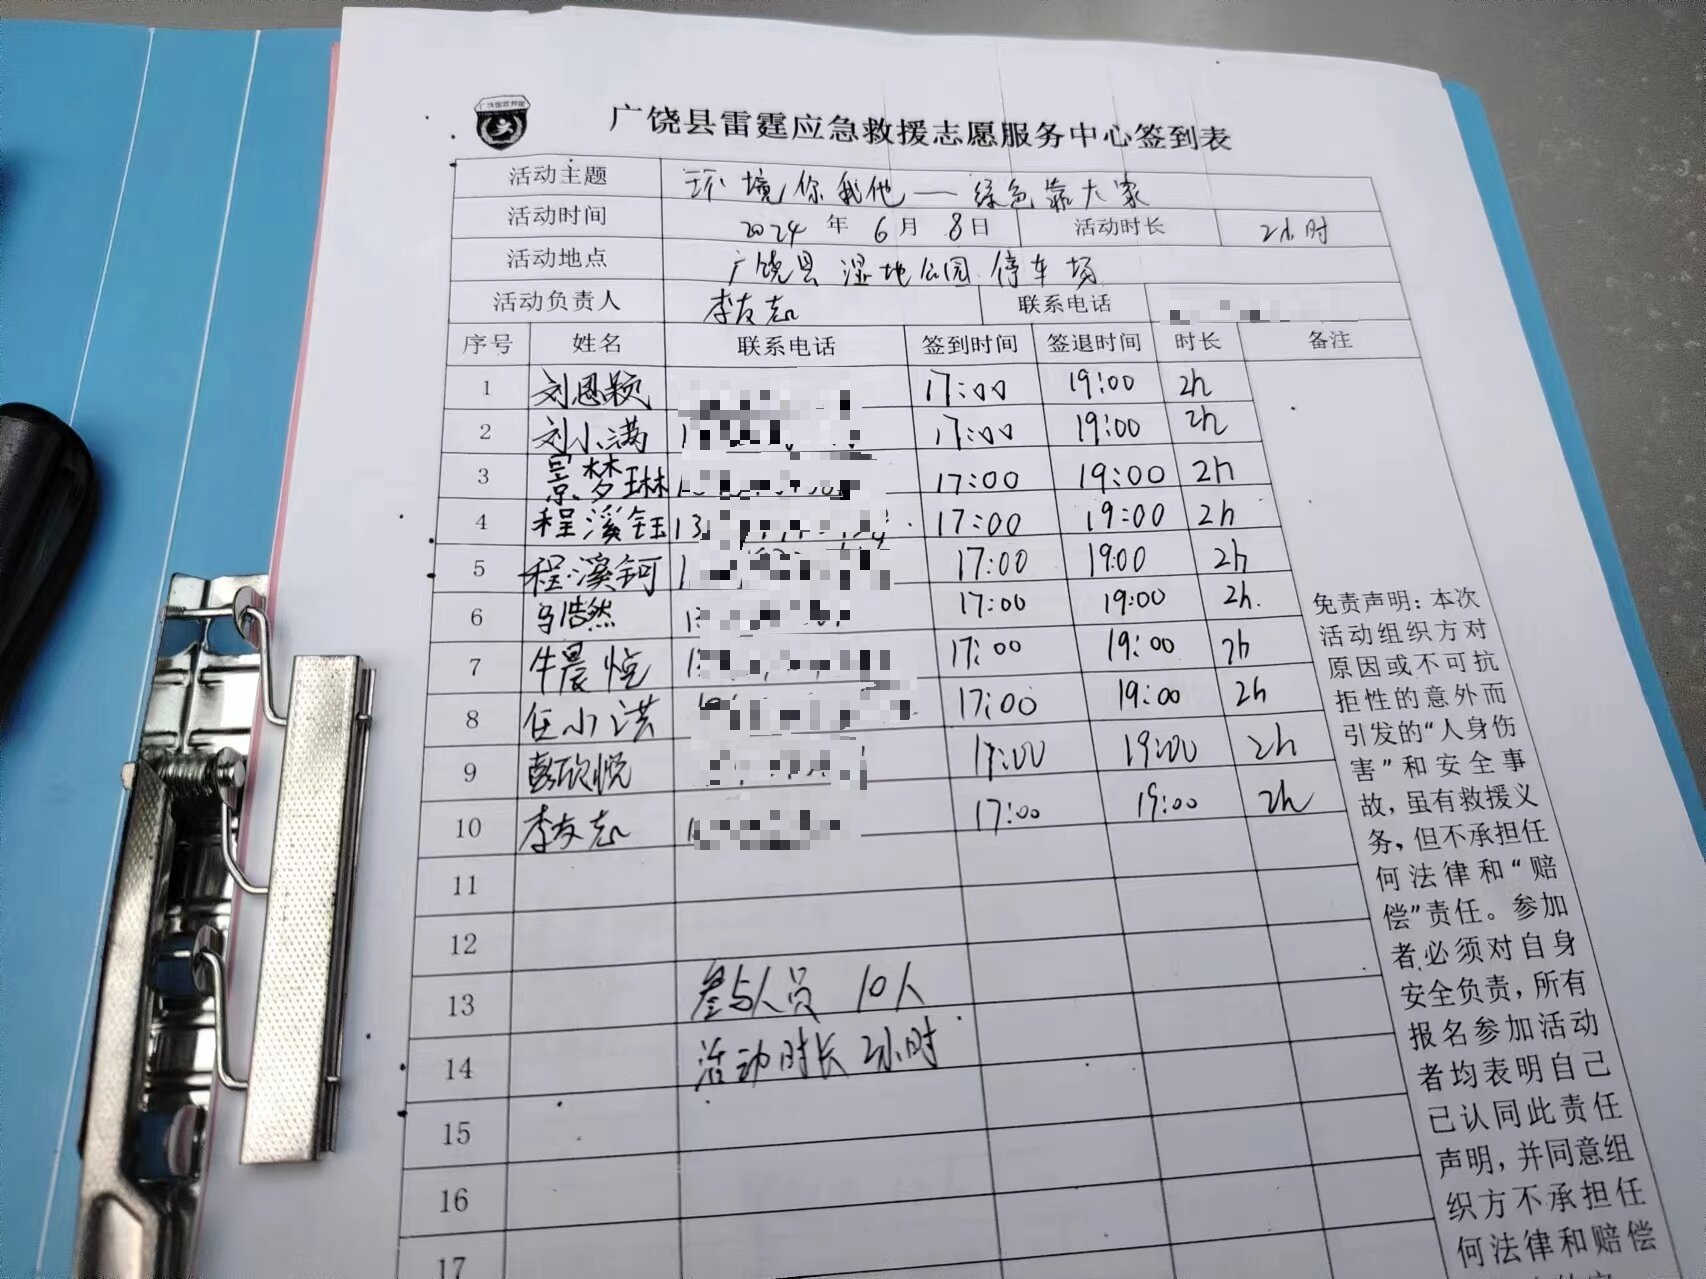 广饶县雷霆应急救援志愿服务中心签到表
活动主题 环境你我他——绿色靠大家
活动时间 2024 年 6 月 8 日 活动时长 2小时
活动地点 广饶县 湿地公园 停车场
活动负责人 李友志 联系电话
序号 姓名 联系电话 签到时间 签退时间 时长 备注
1 刘恩颖 17:00 19:00 2h
2 刘小满 17:00 19:00 2h
3 景梦琳 17:00 19:00 2h
4 程溪钰 13 17:00 19:00 2h
5 程溪钶 17:00 19:00 2h
6 浩然 17:00 19:00 2h.
7 牛晨悦 17:00 19:00 2h
8 任小洪 17:00 19:00 2h
9 彭欣悦 17:00 19:00 2h
10 李友志 17:00 19:00 2h
11
12
13 参与人员 10人
14 活动时长 2小时
15
16
17
免责声明：本次
活动组织方对
原因或不可抗
拒性的意外而
引发的“人身伤
害”和安全事
故，虽有救援义
务，但不承担任
何法律和“赔
偿”责任。参加
者必须对自身
安全负责，所有
报名参加活动
者均表明自己
已认同此责任
声明，并同意组
织方不承担任
何法律和赔偿